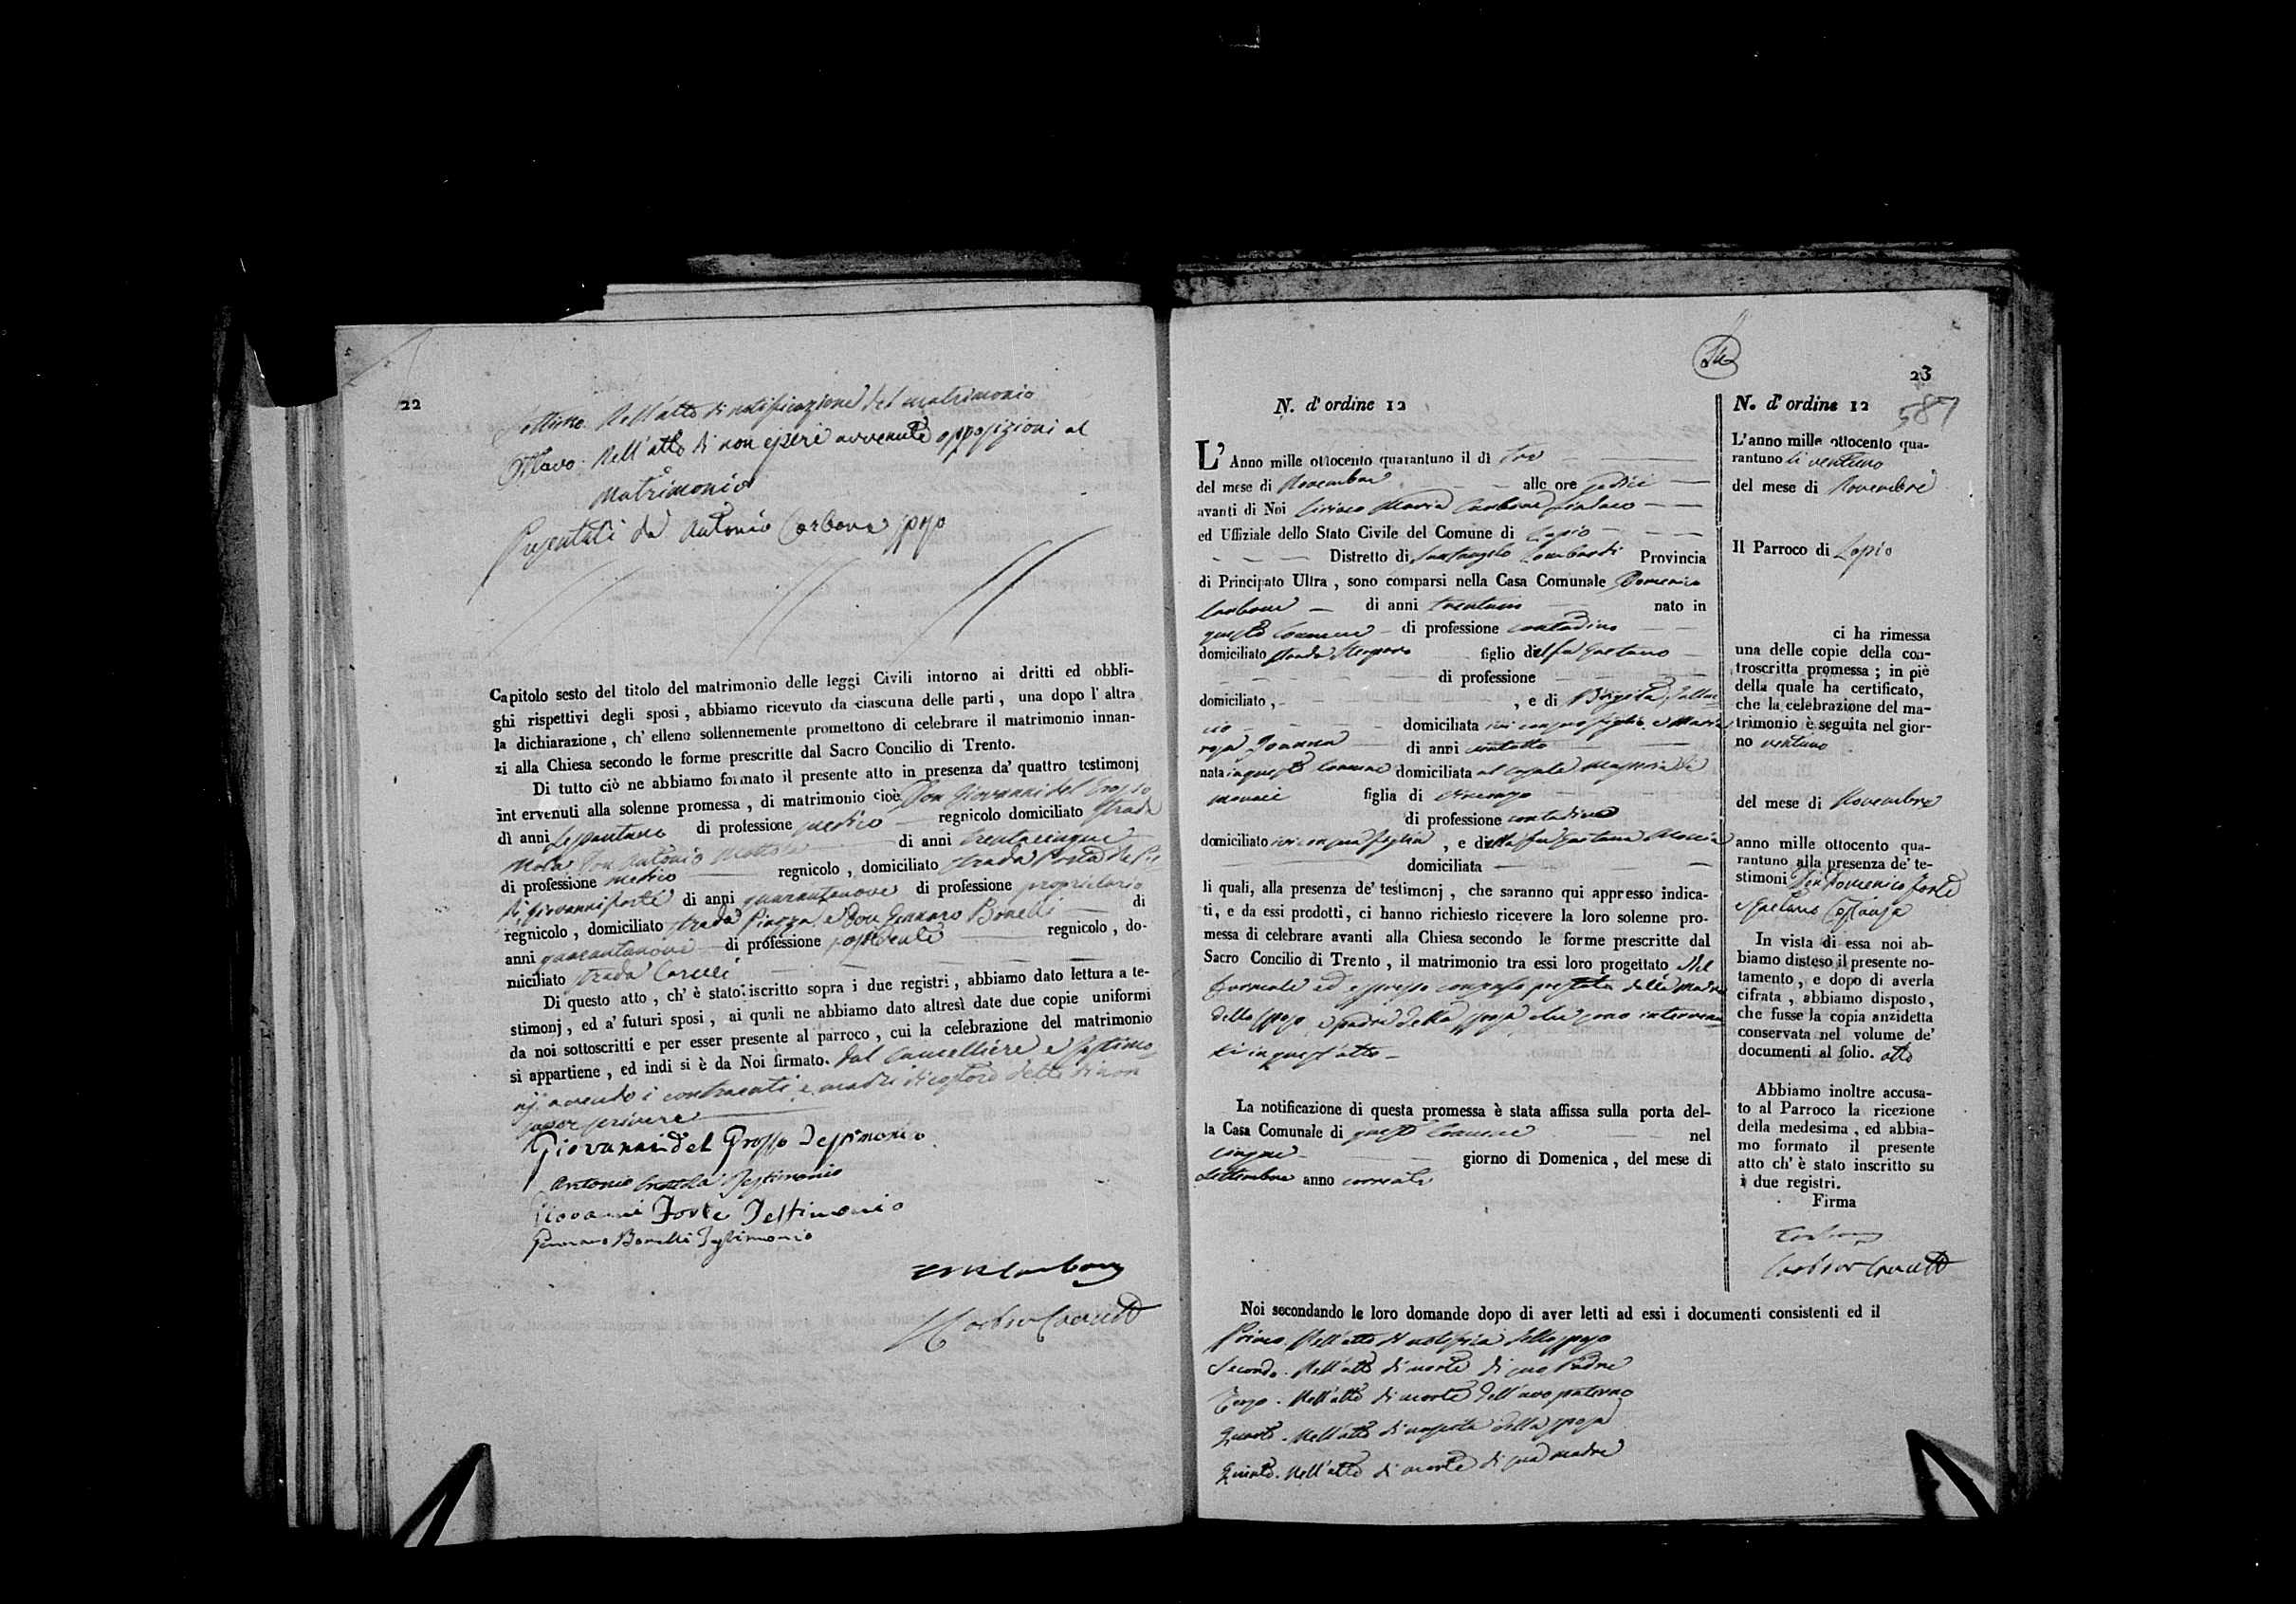 22
Settimo. Nell'atto di notificazione del matrimonio
Ottavo. Nell'atto di non essere avvenute opposizioni al
Matrimonio
Presentati da Antonio Carbone sposo
Capitolo sesto del titolo del matrimonio delle leggi Civili intorno ai dritti ed obbli-
ghi rispettivi degli sposi, abbiamo ricevuto da ciascuna delle parti, una dopo l'altra
la dichiarazione, ch'elleno sollennemente promettono di celebrare il matrimonio innan-
zi alla Chiesa secondo le forme prescritte dal Sacro Concilio di Trento.
Di tutto ciò ne abbiamo formato il presente atto in presenza da' quattro testimonj
intervenuti alla solenne promessa, di matrimonio cioè Don Giovanni del Grosso
di anni sessantuno di professione medico regnicolo domiciliato strada
Don Antonio di anni trentacinque
di professione medico regnicolo, domiciliato strada Porta
Giovanni Forte di anni quarantanove di professione proprietario
regnicolo, domiciliato strada Piazza e Don Gennaro Bonelli di
anni quarantanove di professione possidente regnicolo, do-
miciliato strada
Di questo atto, ch'è stato iscritto sopra i due registri, abbiamo dato lettura a te-
stimonj, ed a' futuri sposi, ai quali ne abbiamo dato altresì date due copie uniformi
da noi sottoscritti e per esser presente al parroco, cui la celebrazione del matrimonio
si appartiene, ed indi si è da Noi firmato. dal Cancelliere e testimo-
nj avendo i contraenti e madri di costoro detto di non
saper scrivere
Giovanni del Grosso Testimonio
Antonio Testimonio
Giovanni Forte Testimonio
Gennaro Bonelli Testimonio
Carbone
23
587
N. d'ordine 12
L'Anno mille ottocento quarantuno il dì tre
del mese di Novembre alle ore sedici
avanti di Noi Ciriaco Maria Carbone Sindaco
ed Uffiziale dello Stato Civile del Comune di Lapio
Distretto di Santangelo Lombardi Provincia
di Principato Ultra, sono comparsi nella Casa Comunale Domenico
Carbone di anni trentuno nato in
questo Comune di professione contadino
domiciliato strada figlio del fu Gaetano
di professione
domiciliato, , e di Brigida
domiciliata ivi con suo figlio e Maria
rosa Joanna di anni ventotto
nata in questo Comune domiciliata al casale
figlia di Vincenzo
di professione contadino
domiciliato ivi con sua figlia, e della fu Gaetana
domiciliata
li quali, alla presenza de' testimonj, che saranno qui appresso indica-
ti, e da essi prodotti, ci hanno richiesto ricevere la loro solenne pro-
messa di celebrare avanti alla Chiesa secondo le forme prescritte dal
Sacro Concilio di Trento, il matrimonio tra essi loro progettato nel
formale ed espresso consenso prestato dalla Madre
dello sposo e padre della sposa che sono interven
ti in quest'atto
La notificazione di questa promessa è stata affissa sulla porta del-
la Casa Comunale di questo Comune nel
cinque giorno di Domenica, del mese di
Settembre anno corrente
Noi secondando le loro domande dopo di aver letti ad essi i documenti consistenti ed il
Primo. Nell'atto di nascita dello sposo
Secondo. Nell'atto di morte di suo Padre
Terzo. Nell'atto di morte dell'avo paterno
Quarto. Nell'atto di nascita della sposa
Quinto. Nell'atto di morte di sua madre
N. d'ordine 12
L'anno mille ottocento qua-
rantuno li ventuno
del mese di Novembre
Il Parroco di Lapio
ci ha rimessa
una delle copie della con-
troscritta promessa; in piè
della quale ha certificato,
che la celebrazione del ma-
trimonio è seguita nel gior-
no ventuno
del mese di Novembre
anno mille ottocento qua-
rantuno alla presenza de' te-
stimoni Don Domenico Forte
e Gaetano Costanza
In vista di essa noi ab-
biamo disteso il presente no-
tamento, e dopo di averla
cifrata, abbiamo disposto,
che fusse la copia anzidetta
conservata nel volume de'
documenti al folio. otto
Abbiamo inoltre accusa-
to al Parroco la ricezione
della medesima, ed abbia-
mo formato il presente
atto ch'è stato inscritto su
i due registri.
Firma